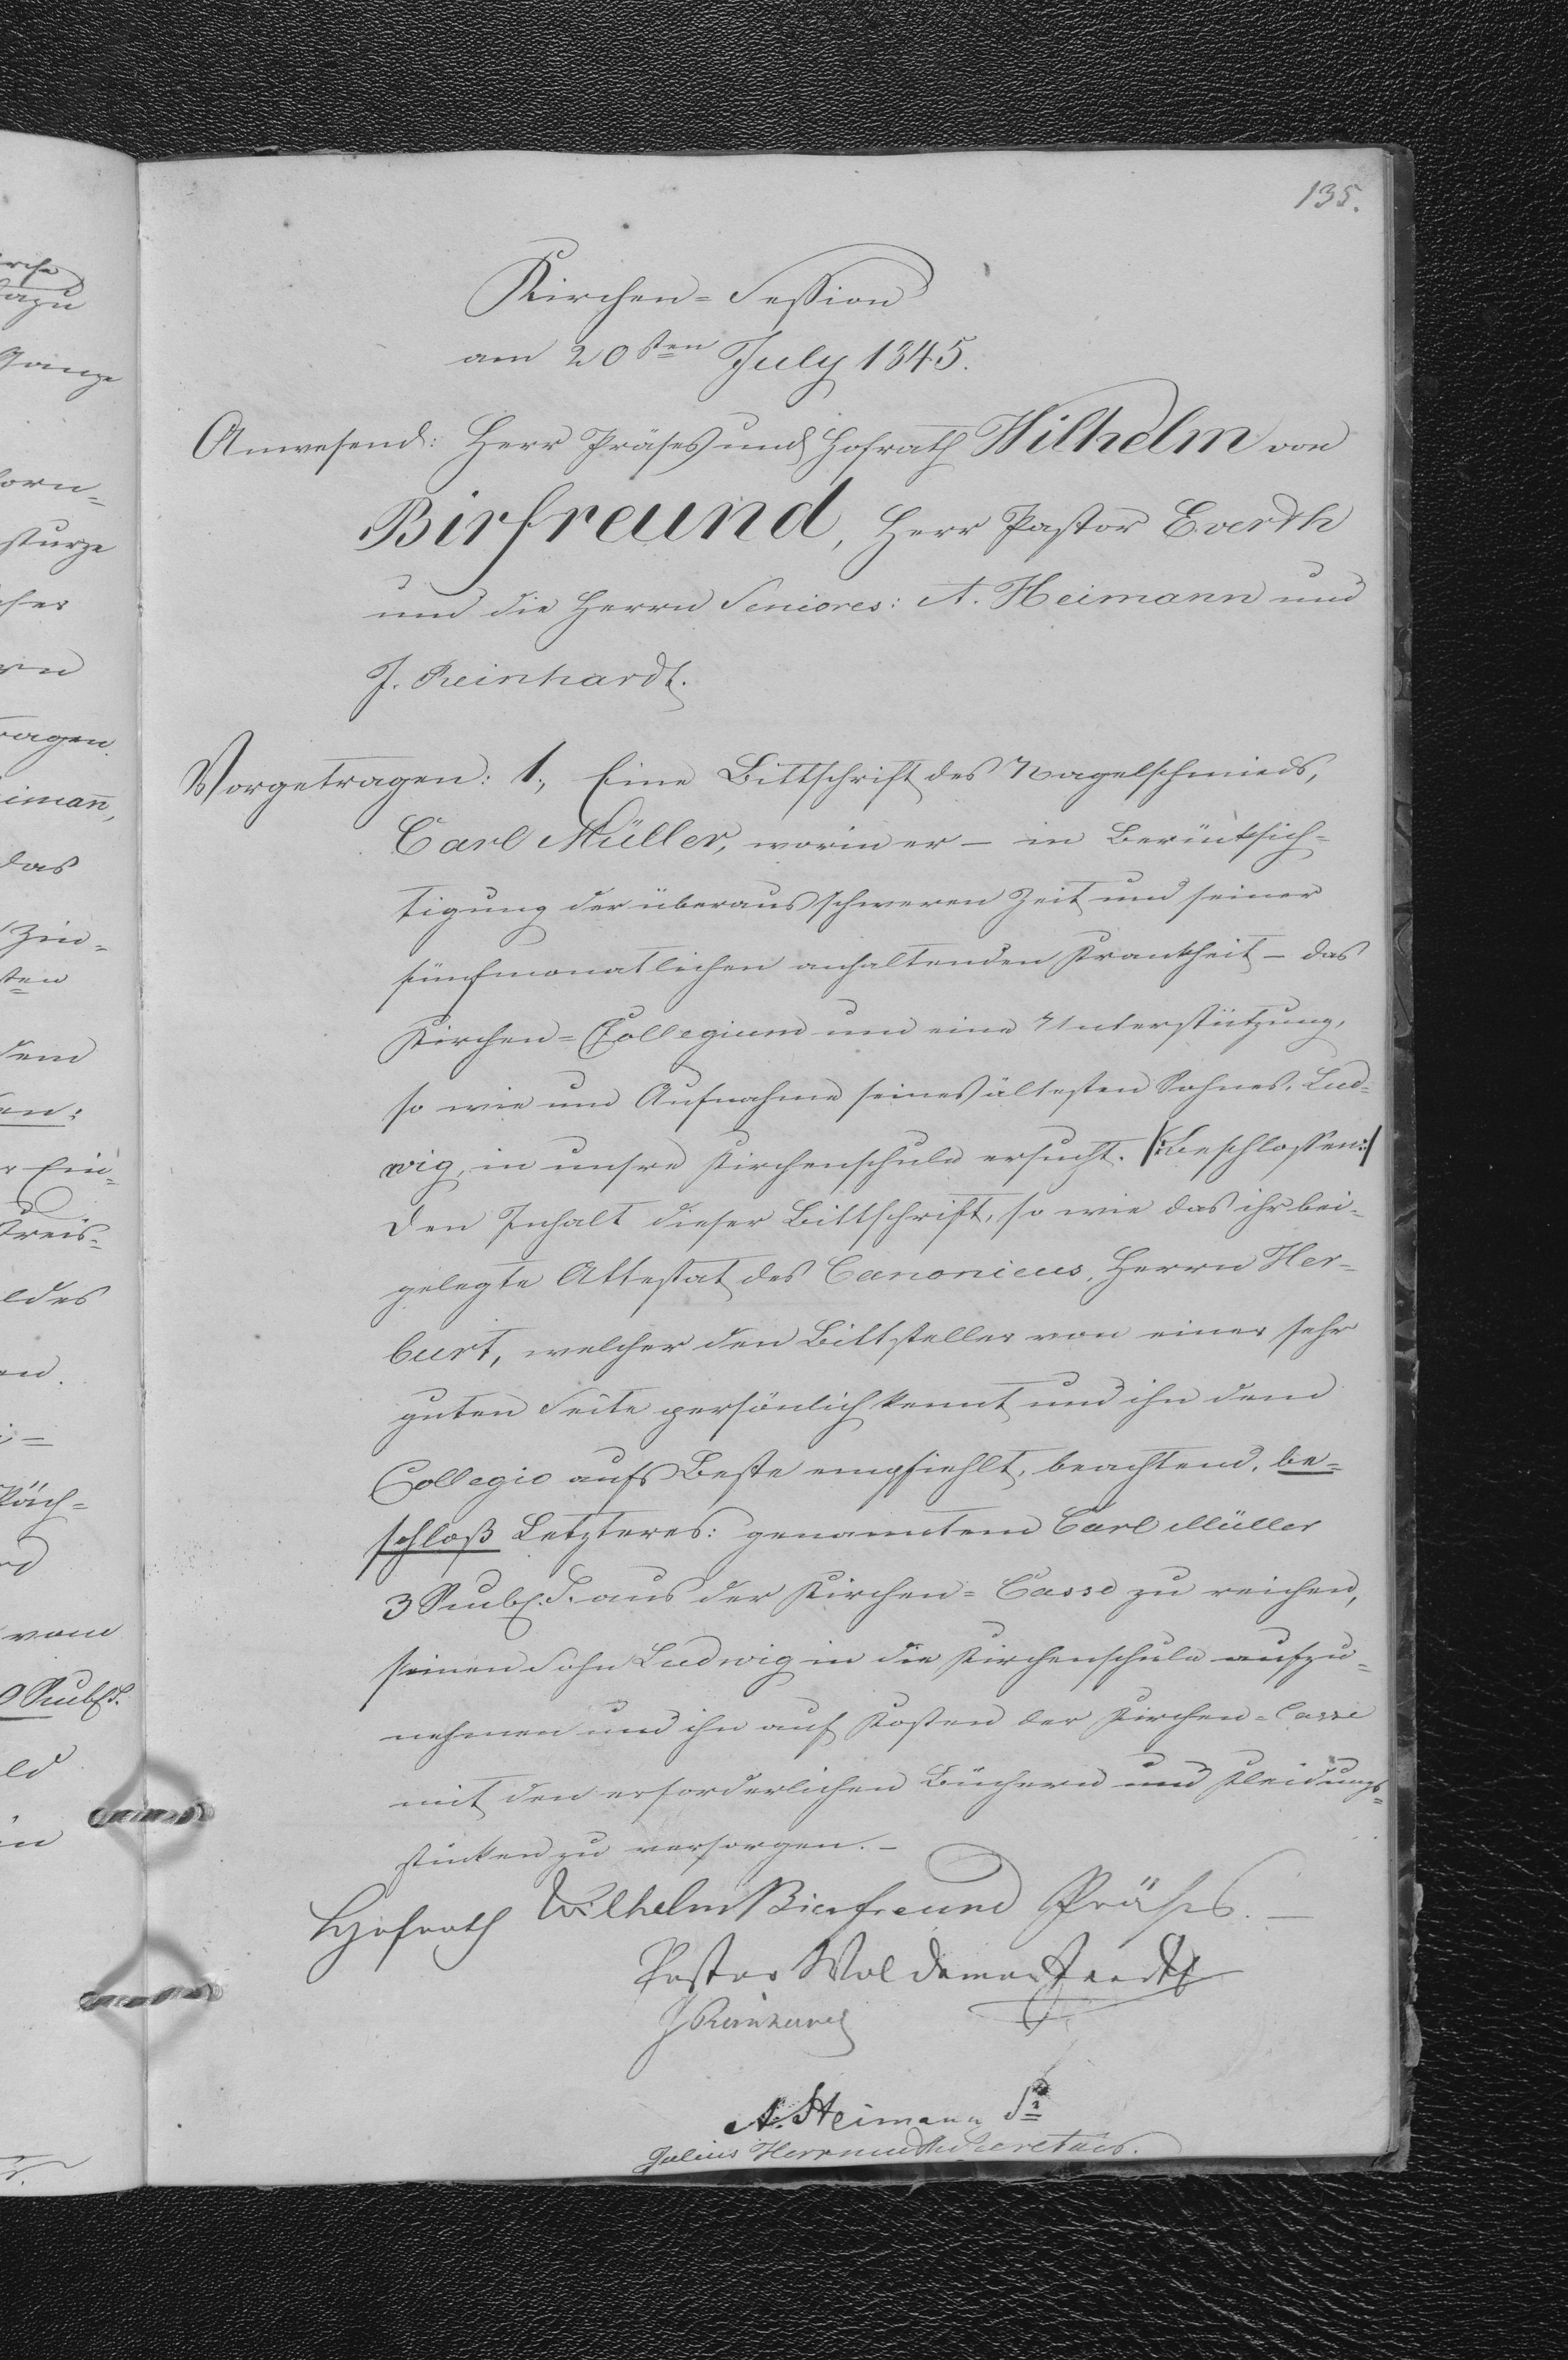 135.
Kirchen-Session
am 20sten July 1845.
Anwesend: Herr Präses und Hofrath Wilhelm von
Birfreund, Herr Pastor Everth
und die Herrn Seniores: A. Heimann und
J. Reinhardt.
Vorgetragen: 1., Eine Bittschrift des Nagelschmieds,
Carl Müller, worin er - in Berücksich-
tigung der überaus schweren Zeit und seiner
fünfmonatlichen anhaltenden Krankheit - das
Kirchen-Collegium um eine Unterstützung,
so wie um Aufnahme seines ältesten Sohnes, Lud-
wig, in unsre Kirchenschule ersucht. /:Beschlossen:/
Den Inhalt dieser Bittschrift, so wie das ihr bei-
gelegte Attestat des Canonicus, Herrn Her-
burt, welcher den Bittsteller von einer sehr
guten Seite persönlich kennt und ihn dem
Collegio aufs Beste empfiehlt, beachtend, be-
schloß Letzteres: genanntem Carl Müller
3 Rubl. S. aus der Kirchen-Casse zu reichen,
seinen Sohn Ludwig in die Kirchenschule aufzu-
nehmen und ihn auf Kosten der Kirchen-Casse
mit den erforderlichen Büchern und Kleidungs-
stücken zu versorgen. -
Hofrath Wilhelm Bierfreund Präses. -
Pastor Woldemar Everth
J Reinhard
A. Heimann
Julius Herrmuth Secretair.
irche
dazu
Ganze
sturze
ragen.
imann,
das
Zin-
sten
dem
en:
r Ein-
Kreis-
ldes
vom
0 Rubl S.